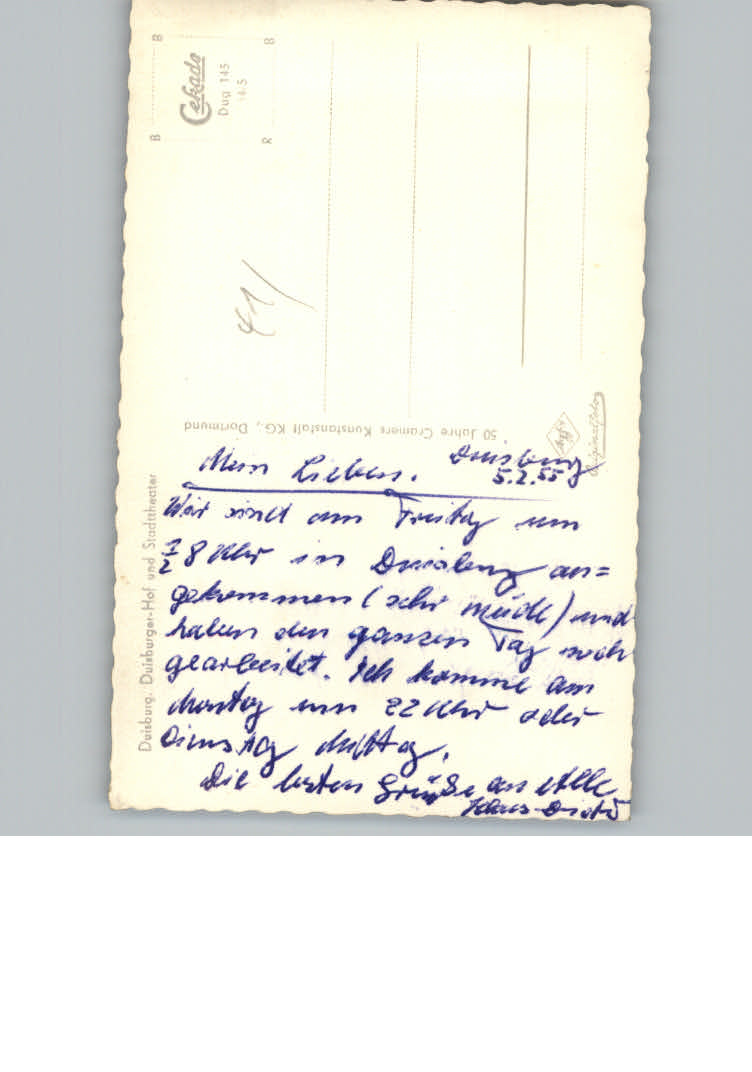 B B
Cekade
Dug 145
14 5
B R
41/
50 Jahre Cramers Kunstanstalt KG., Dortmund
Originalfoto
Duisburg. Duisburger-Hof und Stadttheater
Duisburg
5.2.55
Mein Lieben.
Wir sind am Freitag um
1/2 8 Uhr in Duisburg an=
gekommen (sehr müde) und
haben den ganzen Tag noch
gearbeitet. Ich komme am
Montag um 22 Uhr oder
Dienstag Mittag.
Die besten Grüße an Alle
Klaus-Dieter